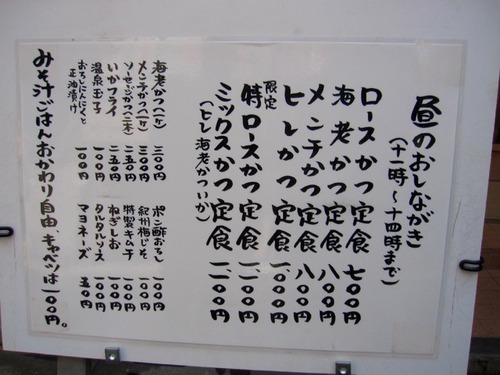 昼のおしながき
(十一時〜十四時まで)
ロースかつ定食 七〇〇円
海老かつ定食 八〇〇円
メンチかつ定食 八〇〇円
ヒレかつ定食 一、〇〇〇円
限定 特ロースかつ定食 一、二〇〇円
ミックスかつ定食 一、二〇〇円
(ヒレ海老かついか)
海老かつ(一ヶ) 三〇〇円
メンチかつ(一ケ) 三〇〇円
ソーセージかつ(二本) 二五〇円
いかフライ 二五〇円
温泉玉子 一〇〇円
おろしにんにくと正油漬け 一〇〇円
ポン酢おろし 一〇〇円
紀州梅じそ 一〇〇円
特製キムチ 一〇〇円
ねぎしお 一〇〇円
タルタルソース 一〇〇円
マヨネーズ 五〇円
みそ汁ごはんおかわり自由、キャベツは一〇〇円。